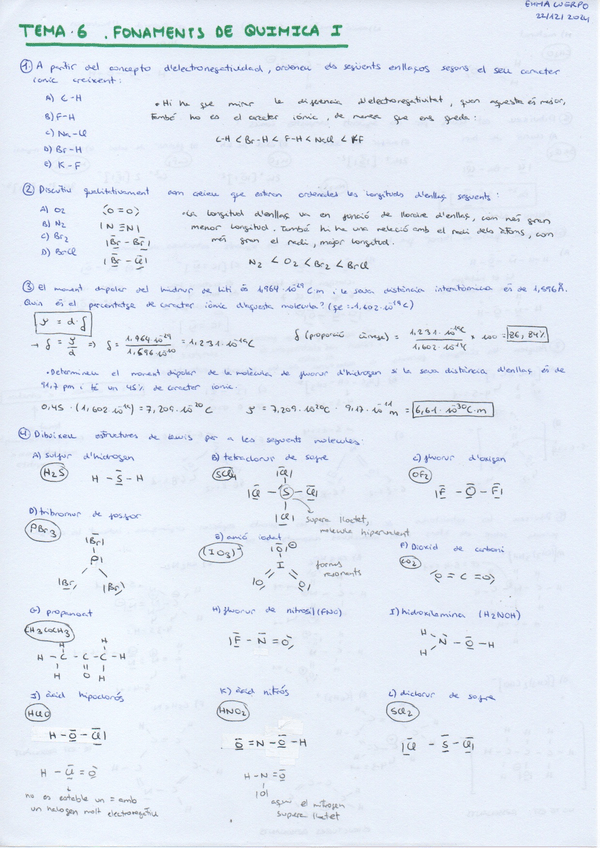 EMMA CUERPO
22/12/2014
TEMA·6 . FONAMENTS DE QUIMICA I
1) A partir del concepto d'electronegatividad, ordeneu els següents enllaços segons el seu caràcter
iònic creixent:
A) C-H
B) F-H
C) Na-Cl
D) Br-H
E) K-F
• Hi ha que mirar la diferència d'electronegativitat, quan aquesta és major,
També ho és el caràcter iònic, de manera que ens queda:
C-H < Br-H < F-H < NaCl < KF
2) Discutiu qualitativament com creieu que estaran ordenades les longituds d'enllaç següents:
A) O2 ⟨O=O⟩
B) N2 |N≡N|
C) Br2 |Br-Br|
D) BrCl |Br-Cl|
• La longitud d'enllaç va en funció de l'ordre d'enllaç, com més gran
menor longitud. També hi ha una relació amb el radi dels àtoms, com
més gran el radi, major longitud.
N2 < O2 < Br2 < BrCl
3) El moment dipolar del hidrur de liti és 1,964·10⁻²⁹ C m i la seva distància interatòmica és de 1,596Å.
Quin és el percentatge de caràcter iònic d'aquesta molècula? (qe=1,602·10⁻¹⁹C)
μ = d·δ
→ δ = μ/d ⇒ δ = 1,964·10⁻²⁹ / 1,596·10⁻¹⁰ = 1,231·10⁻¹⁹C
δ (proporció càrrega) = 1,231·10⁻¹⁹C / 1,602·10⁻¹⁹ × 100 = 76,84%
• Determineu el moment dipolar de la molècula de fluorur d'hidrogen si la seva distància d'enllaç és de
91,7 pm i té un 45% de caràcter iònic.
0,45·(1,602·10⁻¹⁹) = 7,209·10⁻²⁰C μ = 7,209·10⁻²⁰C · 9,17·10⁻¹¹ m = 6,61·10⁻³⁰C·m
4) Dibuixeu estructures de Lewis per a les següents molècules:
A) sulfur d'hidrogen
H2S
H-S-H
B) tetraclorur de sofre
SCl4
|Cl|
|Cl-S-Cl|
|Cl|
supera l'octet,
molècula hipervalent
C) fluorur d'oxigen
OF2
|F-O-F|
D) tribromur de fosfor
PBr3
|Br|
P|
|Br Br|
E) anió iodat
(IO3)⁻
|O|⊖
I
O O
formes
ressonants
F) Dioxid de carboni
CO2
⟨O=C=O⟩
G) propanona
CH3COCH3
H H
H-C-C-C-H
H O H
H) fluorur de nitrosil (FNO)
|F-N=O⟩
I) hidroxilamina (H2NOH)
H
N-O-H
H
J) àcid hipoclorós
HClO
H-O-Cl|
H-Cl=O
no és estable un = amb
un halogen molt electronegatiu
K) àcid nitrós
HNO2
O=N-O-H
H-N=O
|O|
aquí el nitrogen
supera l'octet
L) diclorur de sofre
SCl2
|Cl-S-Cl|